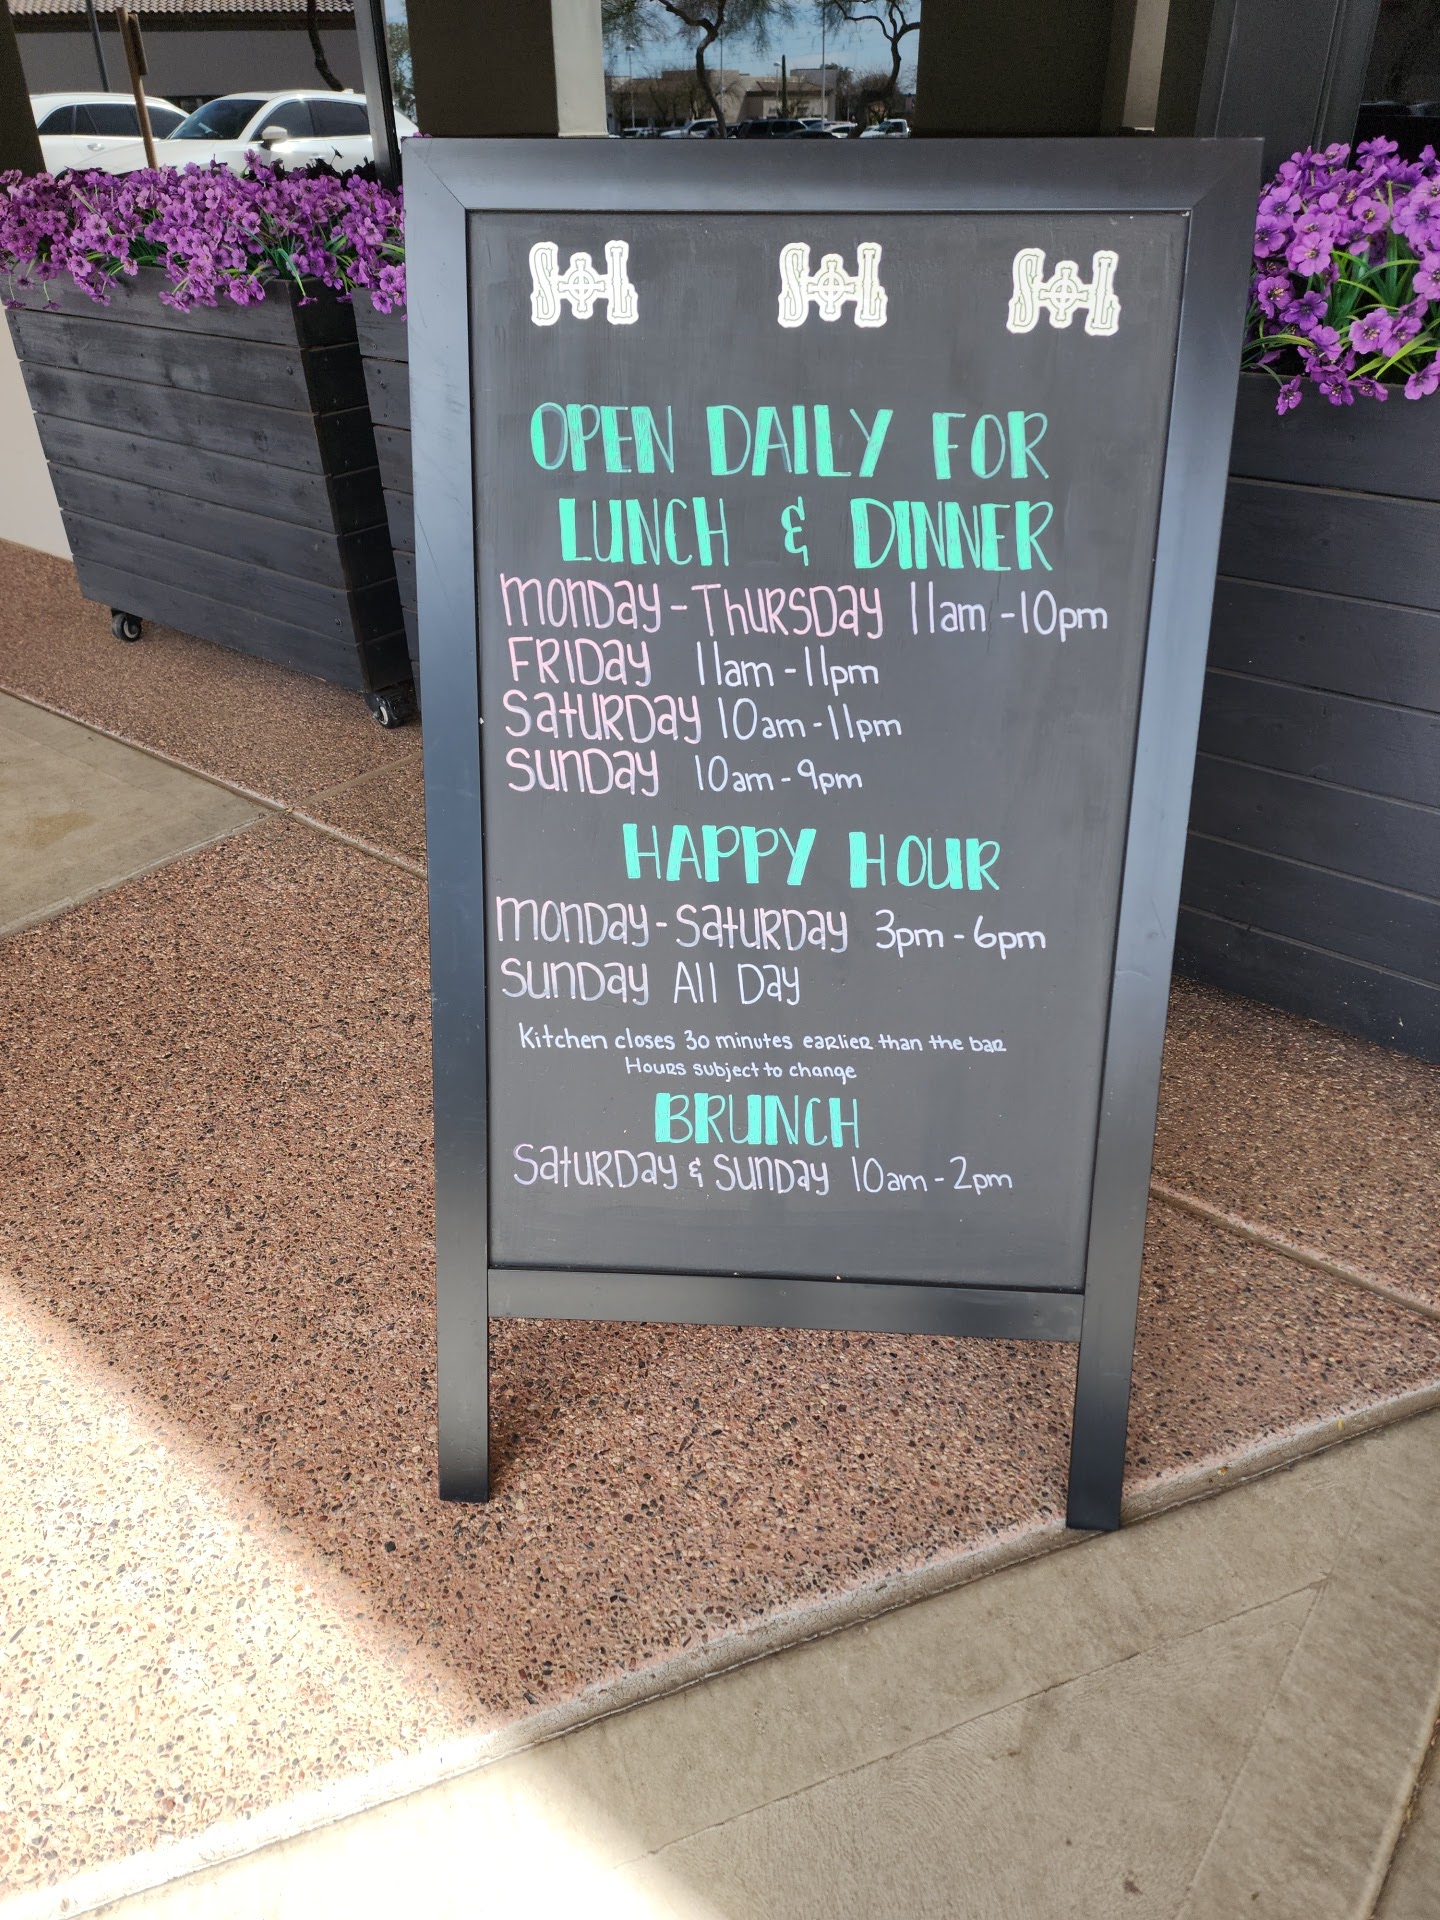 S&L S&L S&L
OPEN DAILY FOR
LUNCH & DINNER
MONDAY - THURSDAY 11am - 10pm
FRIDAY 11am - 11pm
SATURDAY 10am - 11pm
SUNDAY 10am - 9pm
HAPPY HOUR
MONDAY - SATURDAY 3pm - 6pm
SUNDAY All DAY
Kitchen closes 30 minutes earlier than the bar
Hours subject to change
BRUNCH
SATURDAY & SUNDAY 10am - 2pm